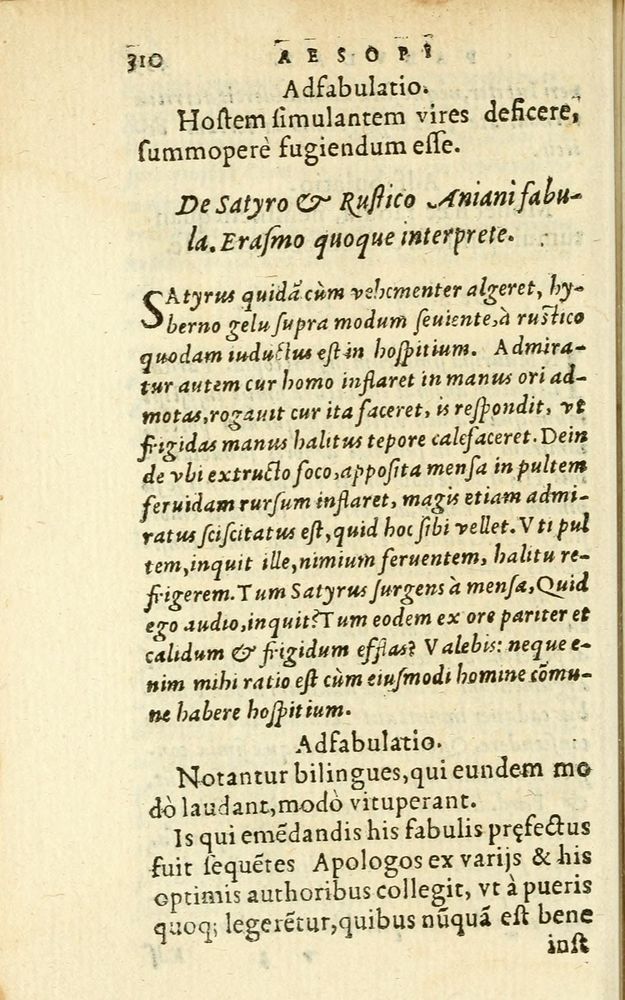 310 AESOPI
Adfabulatio.
Hostem simulantem vires deficere,
summoperè fugiendum esse.
De Satyro & Rustico Aniani fabu-
la. Erasmo quoque interprete.
SAtyrus quidã cùm vehementer algeret, hy-
berno gelu supra modum seuiente, à rustico
quodam inductus est in hospitium. Admira-
tur autem cur homo inflaret in manus ori ad-
motas, rogauit cur ita faceret, is respondit, vt
frigidas manus halitus tepore calefaceret. Dein
de vbi extructo foco, apposita mensa in pultem
feruidam rursum inflaret, magis etiam admi-
ratus sciscitatus est, quid hoc sibi vellet. Vti pul
tem, inquit ille, nimium feruentem, halitu re-
frigerem. Tum Satyrus surgens à mensa, Quid
ego audio, inquit? Tum eodem ex ore pariter et
calidum & frigidum efflas? Valebis: neque e-
nim mihi ratio est cùm eiusmodi homine cõmu-
ne habere hospitium.
Adfabulatio.
Notantur bilingues, qui eundem mo
dò laudant, modò vituperant.
Is qui emẽdandis his fabulis pręfectus
fuit sequẽtes Apologos ex varijs & his
optimis authoribus collegit, vt à pueris
quoq; legerẽtur, quibus nũquã est bene
inst